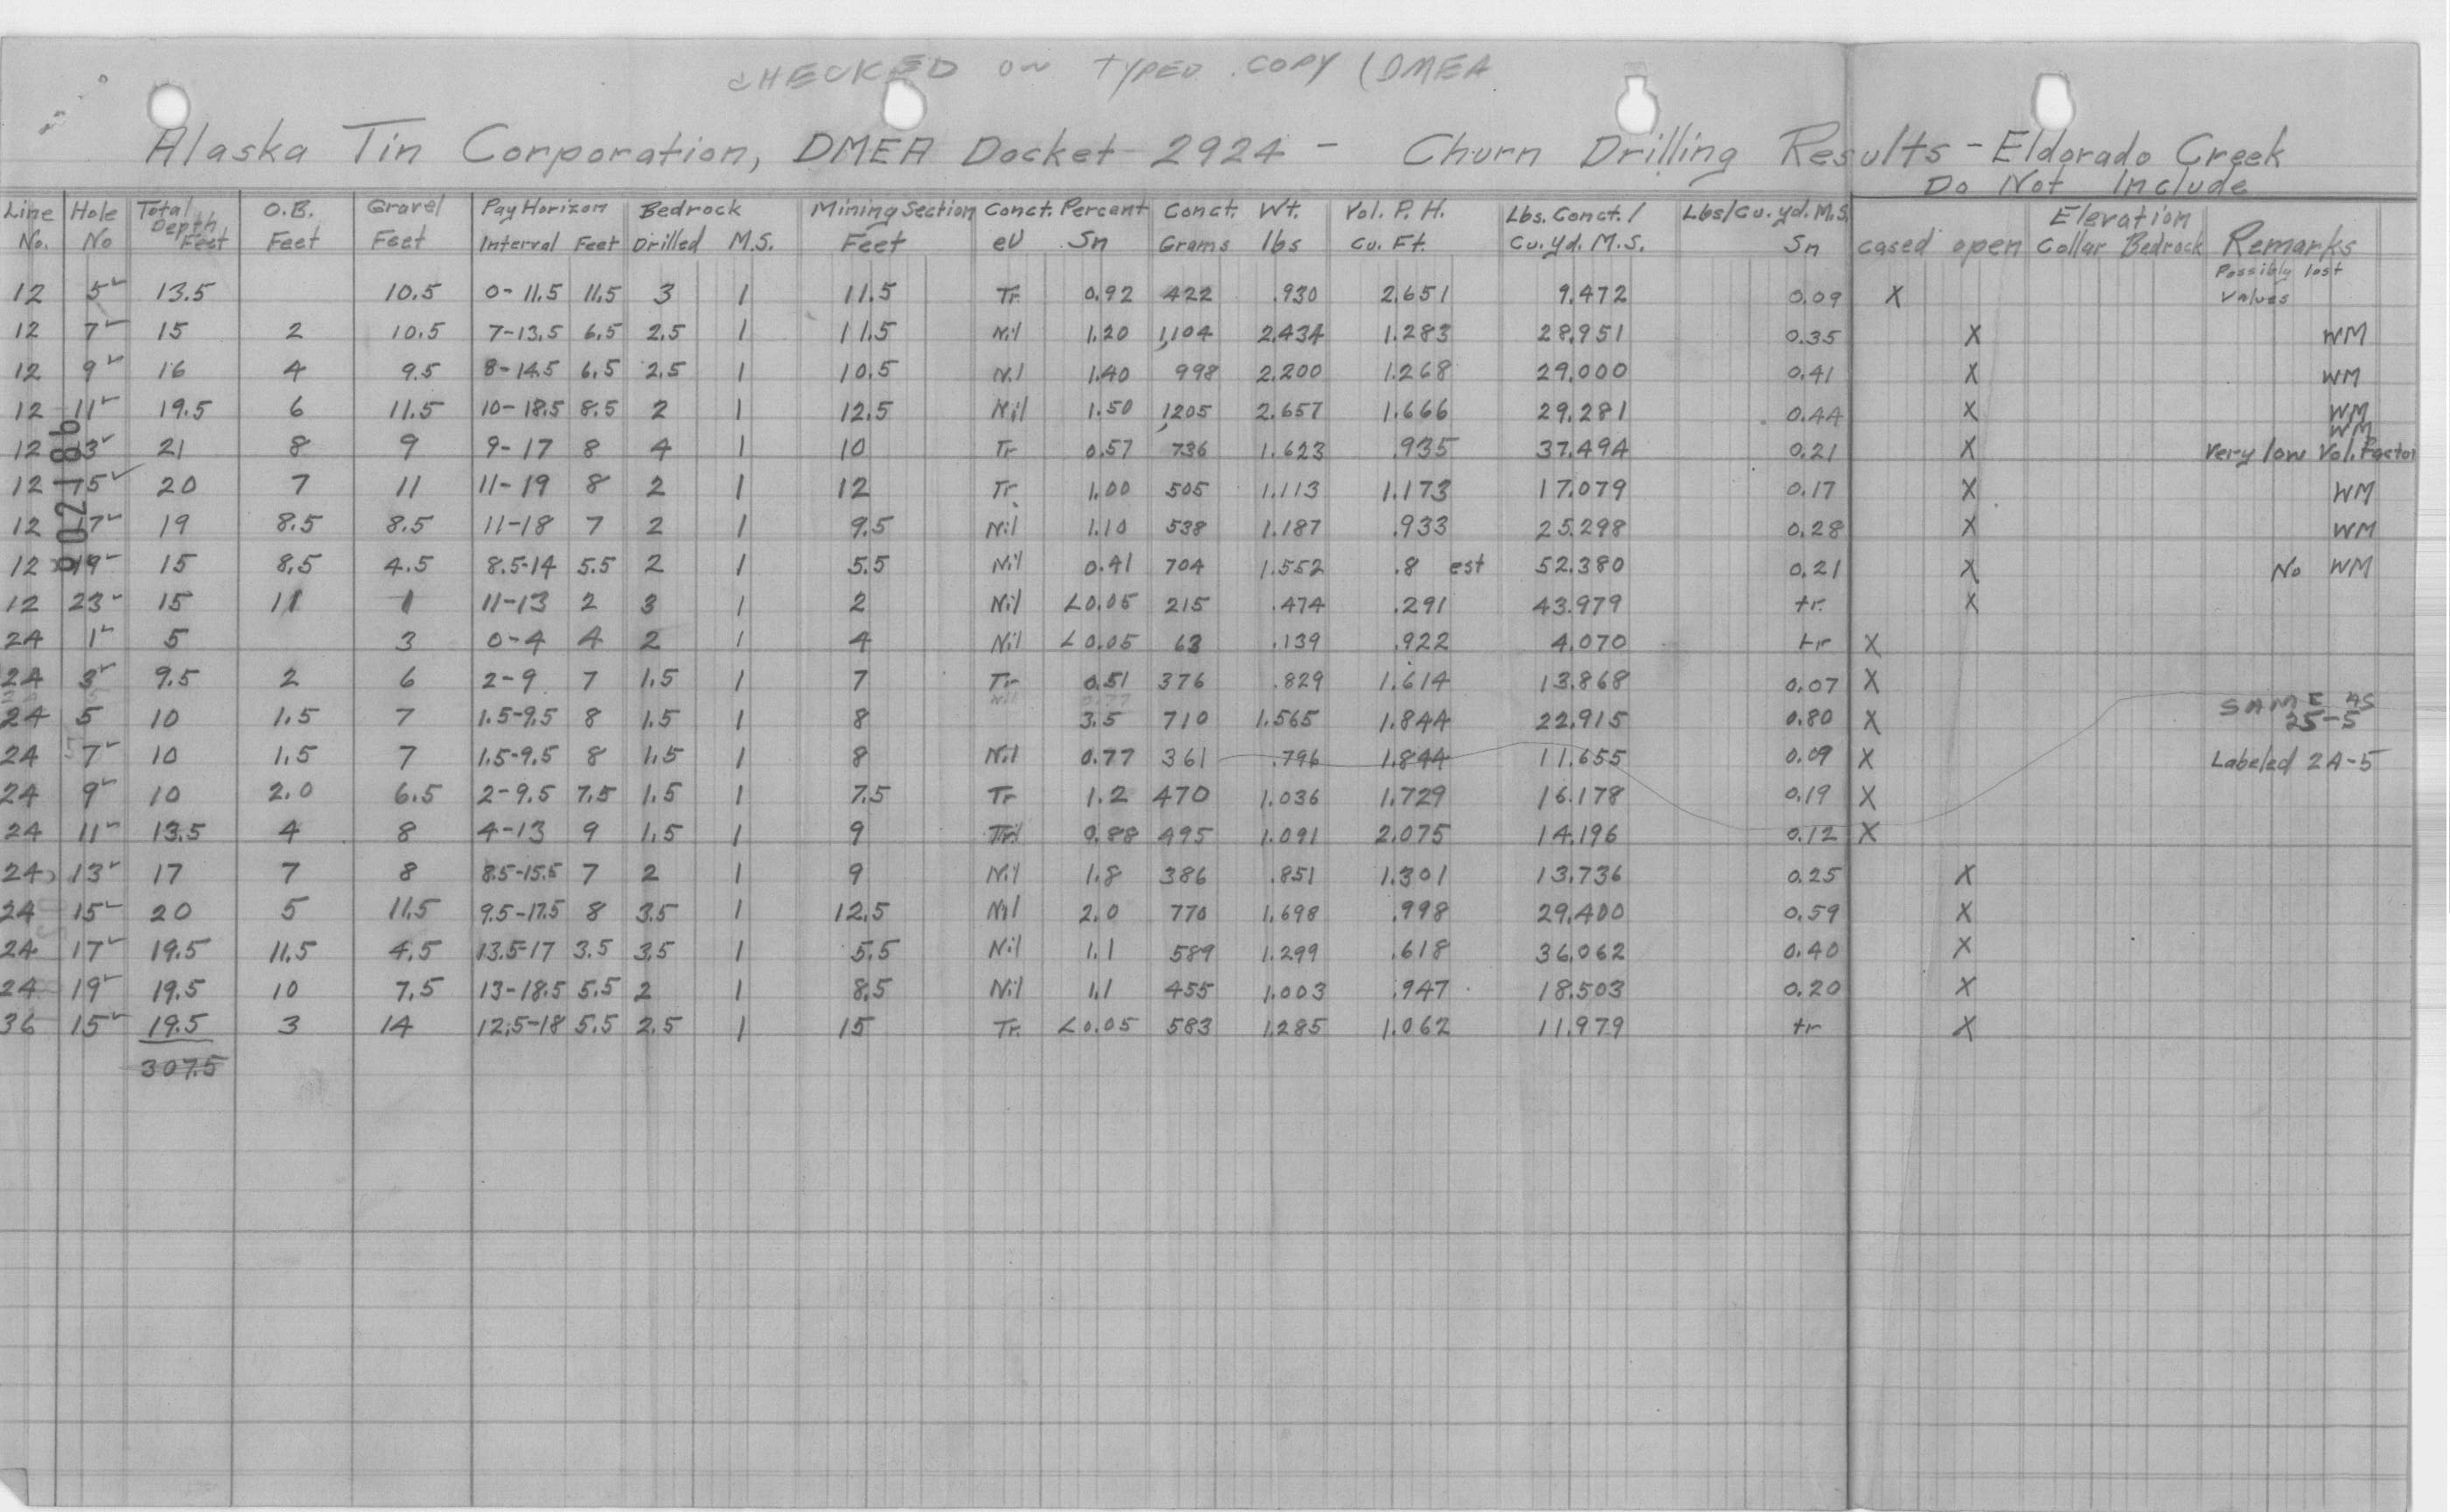 CHECKED ON TYPED COPY (DMEA
Alaska Tin Corporation, DMEA Docket 2924 - Churn Drilling Results - Eldorado Creek
Do Not Include
Line Hole Total O.B. Gravel Pay Horizon Bedrock Mining Section Conct. Percent Conct. Wt. Vol. P. H. Lbs. Conct. / Lbs/cu. yd. M.S. Elevation
No. No Depth Feet Feet Feet Interval Feet Drilled M.S. Feet eU Sn Grams lbs Cu. Ft. Cu. Yd. M.S. Sn cased open Collar Bedrock Remarks
12 5 13.5 10.5 0-11.5 11.5 3 1 11.5 Tr 0.92 422 .930 2.651 9.472 0.09 X Possibly lost values
12 7 15 2 10.5 7-13.5 6.5 2.5 1 11.5 Nil 1.20 1,104 2.434 1.283 28.951 0.35 X WM
12 9 16 4 9.5 8-14.5 6.5 2.5 1 10.5 Nil 1.40 998 2.200 1.268 29.000 0.41 X WM
12 11 19.5 6 11.5 10-18.5 8.5 2 1 12.5 Nil 1.50 1,205 2.657 1.666 29.281 0.44 X WM
12 13 21 8 9 9-17 8 4 1 10 Tr 0.57 736 1.623 .935 37.494 0.21 X WM Very low Vol. Factor
12 15 20 7 11 11-19 8 2 1 12 Tr 1.00 505 1.113 1.173 17.079 0.17 X WM
12 17 19 8.5 8.5 11-18 7 2 1 9.5 Nil 1.10 538 1.187 .933 25.298 0.28 X WM
12 19 15 8.5 4.5 8.5-14 5.5 2 1 5.5 Nil 0.41 704 1.552 .8 est 52.380 0.21 X No WM
12 23 15 11 1 11-13 2 3 1 2 Nil <0.05 215 .474 .291 43.979 tr. X
24 1 5 3 0-4 4 2 1 4 Nil <0.05 63 .139 .922 4.070 tr X
24 3 9.5 2 6 2-9 7 1.5 1 7 Tr 0.51 376 .829 1.614 13.868 0.07 X
24 5 10 1.5 7 1.5-9.5 8 1.5 1 8 3.5 710 1.565 1.844 22.915 0.80 X SAME AS 25-5
24 7 10 1.5 7 1.5-9.5 8 1.5 1 8 Nil 0.77 361 .796 1.844 11.655 0.09 X Labeled 24-5
24 9 10 2.0 6.5 2-9.5 7.5 1.5 1 7.5 Tr 1.2 470 1.036 1.729 16.178 0.19 X
24 11 13.5 4 8 4-13 9 1.5 1 9 Tr 0.88 495 1.091 2.075 14.196 0.12 X
24 13 17 7 8 8.5-15.5 7 2 1 9 Nil 1.8 386 .851 1.301 13.736 0.25 X
24 15 20 5 11.5 9.5-17.5 8 3.5 1 12.5 Nil 2.0 770 1.698 .998 29.400 0.59 X
24 17 19.5 11.5 4.5 13.5-17 3.5 3.5 1 5.5 Nil 1.1 589 1.299 .618 36.062 0.40 X
24 19 19.5 10 7.5 13-18.5 5.5 2 1 8.5 Nil 1.1 455 1.003 .947 18.503 0.20 X
36 15 19.5 3 14 12.5-18 5.5 2.5 1 15 Tr. <0.05 583 1.285 1.062 11.979 tr X
307.5